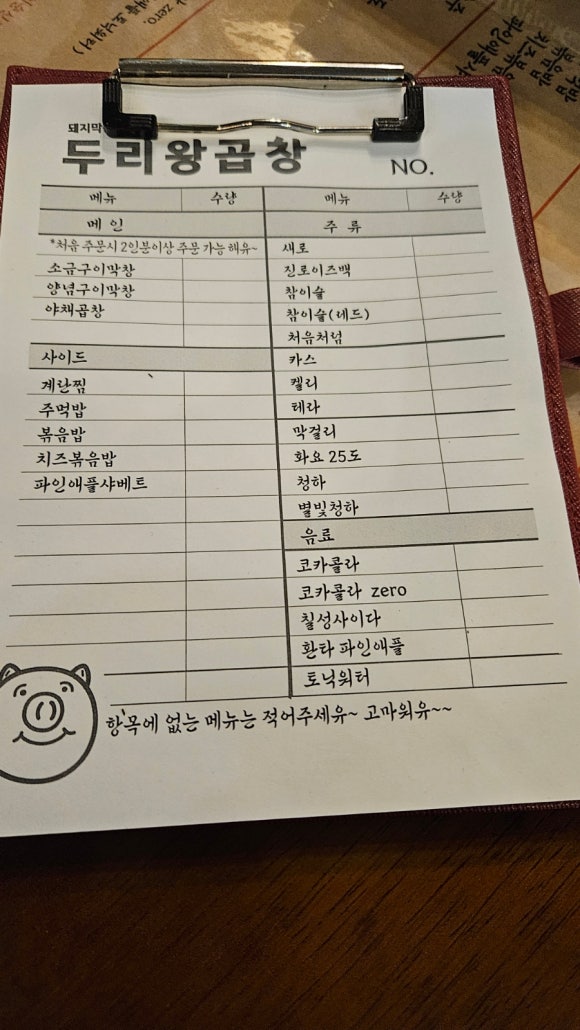 돼지막
두리왕곱창
NO.
메뉴 수량 메뉴 수량
메인
*처음 주문시 2인분이상 주문 가능 해유~
소금구이막창
양념구이막창
야채곱창
사이드
계란찜
주먹밥
볶음밥
치즈볶음밥
파인애플샤베트
주류
새로
진로이즈백
참이슬
참이슬(레드)
처음처럼
카스
켈리
테라
막걸리
화요 25도
청하
별빛청하
음료
코카콜라
코카콜라 zero
칠성사이다
환타 파인애플
토닉워터
항목에 없는 메뉴는 적어주세유~ 고마워유~~